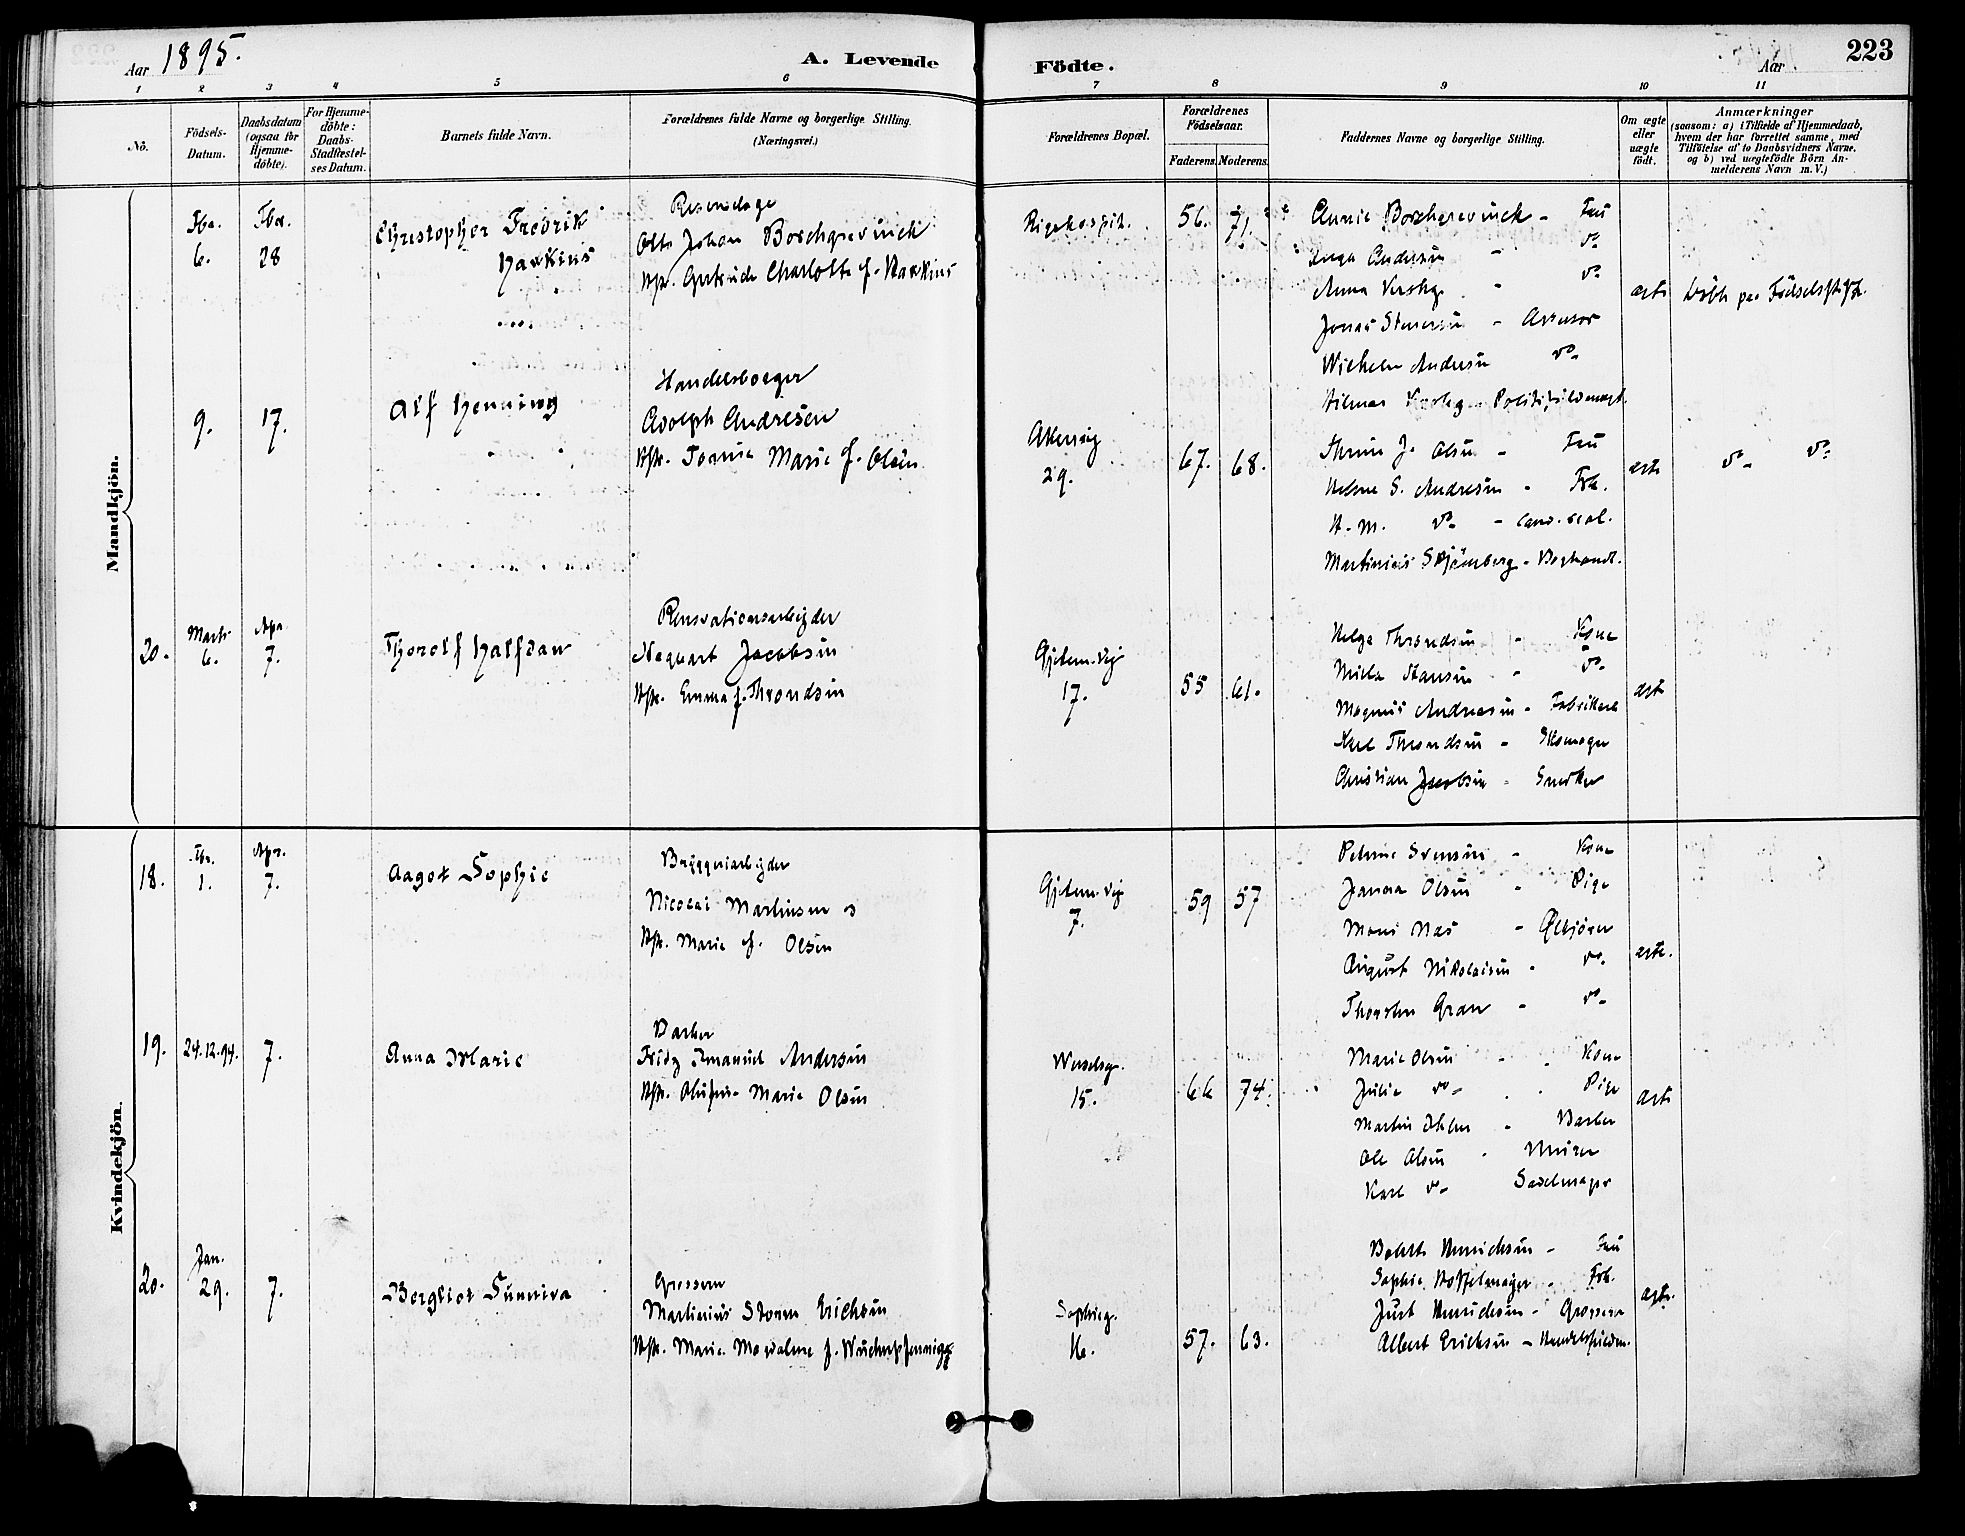 Aar 1895.
A. Levende Födte.
Aar
223
1 2 3 4 5 6 7 8 9 10 11
Nô.
Födsels-Datum.
Daabsdatum (ogsaa for Hjemme-döbte).
For Hjemme-döbte: Daabs-Stadfæstel-ses Datum.
Barnets fulde Navn.
Forældrenes fulde Navne og borgerlige Stilling. (Næringsvei.)
Forældrenes Bopæl.
Forældrenes Födselsaar.
Faderens. Moderens.
Faddernes Navne og borgerlige Stilling.
Om ægte eller uægte födt.
Anmærkninger
(saasom: a) i Tilfælde af Hjemmedaab, hvem der har forrettet samme, med Tilföielse af to Daabsvidners Navne, og b) ved uægtefödte Börn An-melderens Navn m.V.)
Mandkjön.
Fbr. 6.
Fbr. 28
Christopher Fredrik
Hawkins
Otto Johan Borchgrevinck
Hst. Gertrude Charlotte f. Hawkins
Rigshospit.
56. 71.
Annie Borchgrevinck - Fru
Andersen - do
Anna - do
Jonas - Assessor
Wilhelm Andersen do-
Hilmar
ægte
Födselsstift.
9. 17.
Alf Henning
Handelsborger
Adolph Andresen
Hst. Marie f. Olsen
Akersvig
29.
67. 68.
J. Olsen - Fru
S. Andresen - Frk.
H. M. do - Cand. real.
Martinius - Boghandl.
ægte
do- do-
20.
Marts 6.
Apr. 7.
Thorolf Halfdan
Renovationsarbejder
Jacobsen
Hst. Emma f. Throndsen
Gjetem.vej
17.
55 61.
Helga Throndsen - Kone
Hansen - do-
Magnus Andresen - Fabrikarb
Karl Throndsen - Skomager
Christian Jacobsen - Snedker
ægte
Kvindekjön.
18.
Fbr. 1.
Apr. 7.
Aagot Sophie
Bryggeriarbejder
Nicolai Martinsen
Hst. Marie f. Olsen
Gjetem.vej
7.
59 57
Petrine Svensen - Kone
Olsen - Pige
Mons Næs - Ölkjörer
August Nikolaisen - do-
Thorsten Gran - do-
ægte.
19. 24.12.94. 7.
Anna Marie
Barber
Emanuel Andersen
Hst. Marie Olsen
Wesselsg.
15.
66 74.
Marie Olsen - Kone
Julie do - Pige
Martin - Barber
Ole Olsen - Murer
Karl do - Sadelmager
ægte
20.
Jan. 29. 7.
Bergliot Sunniva
Grosserer
Martinius Storm Erichsen
Hst. Marie Magdalene f. Wuchrpfennigg
Sophieg.
16.
57. 63.
Henrichsen - Fru
Sophie - Frk.
Just Henrichsen - Grosserer
Albert Erichsen -
ægte.